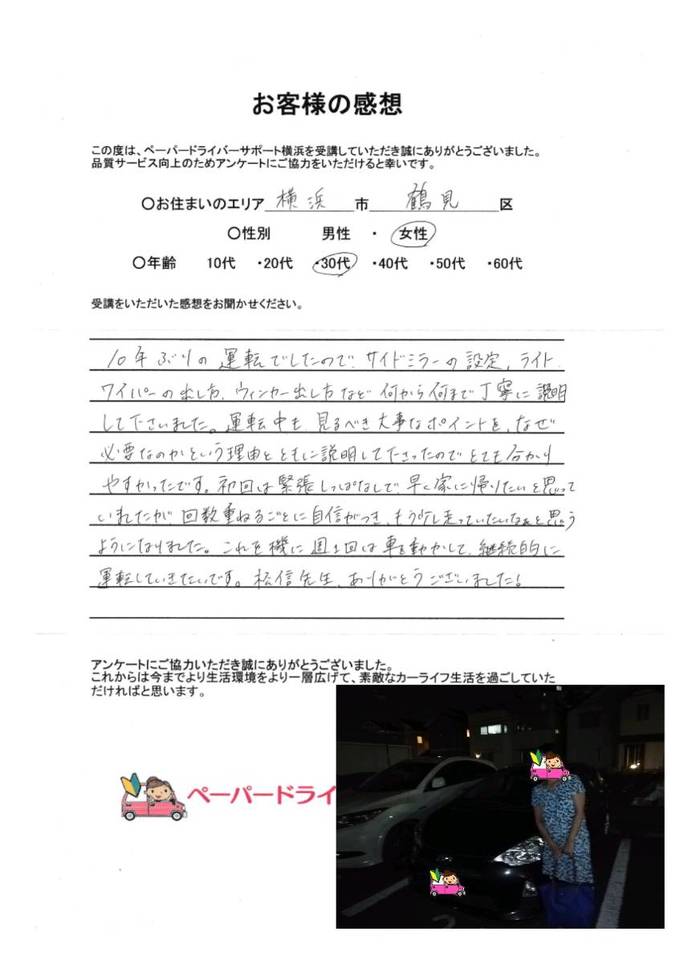 お客様の感想
この度は、ペーパードライバーサポート横浜を受講していただき誠にありがとうございました。
品質サービス向上のためアンケートにご協力をいただけると幸いです。
〇お住まいのエリア 横浜 市 鶴見 区
〇性別 男性 ・ 女性
〇年齢 10代 ・20代 ・30代 ・40代 ・50代 ・60代
受講をいただいた感想をお聞かせください。
10年ぶりの運転でしたので、サイドミラーの設定、ライト、
ワイパーの出し方、ウィンカー出し方など何から何まで丁寧に説明
して下さいました。運転中も見るべき大事なポイントを、なぜ
必要なのかという理由とともに説明して下さったのでとても分かり
やすかったです。初回は緊張しっぱなしで、早く家に帰りたいと思って
いましたが、回数重ねるごとに自信がつき、もう少し走っていたいなぁと思う
ようになりました。これを機に週1回は車を動かして、継続的に
運転していきたいです。松信先生、ありがとうございました!
アンケートにご協力いただき誠にありがとうございました。
これからは今までより生活環境をより一層広げて、素敵なカーライフ生活を過ごしていた
だければと思います。
ペーパードライ